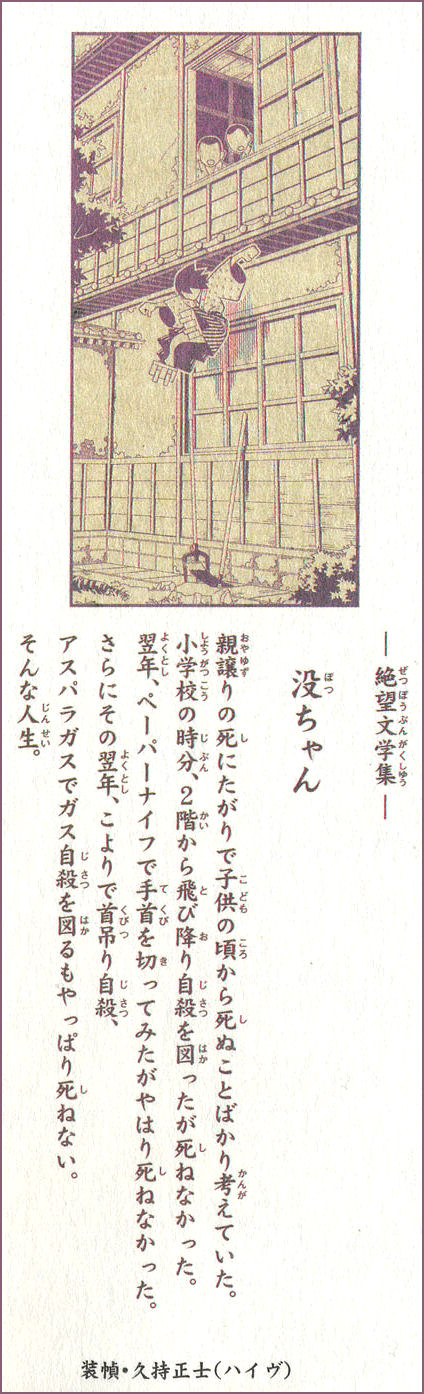 ―絶望文学集―
没ちゃん
親譲りの死にたがりで子供の頃から死ぬことばかり考えていた。
小学校の時分、2階から飛び降り自殺を図ったが死ねなかった。
翌年、ペーパーナイフで手首を切ってみたがやはり死ねなかった。
さらにその翌年、こよりで首吊り自殺、
アスパラガスでガス自殺を図るもやっぱり死ねない。
そんな人生。
装幀・久持正士(ハイヴ)